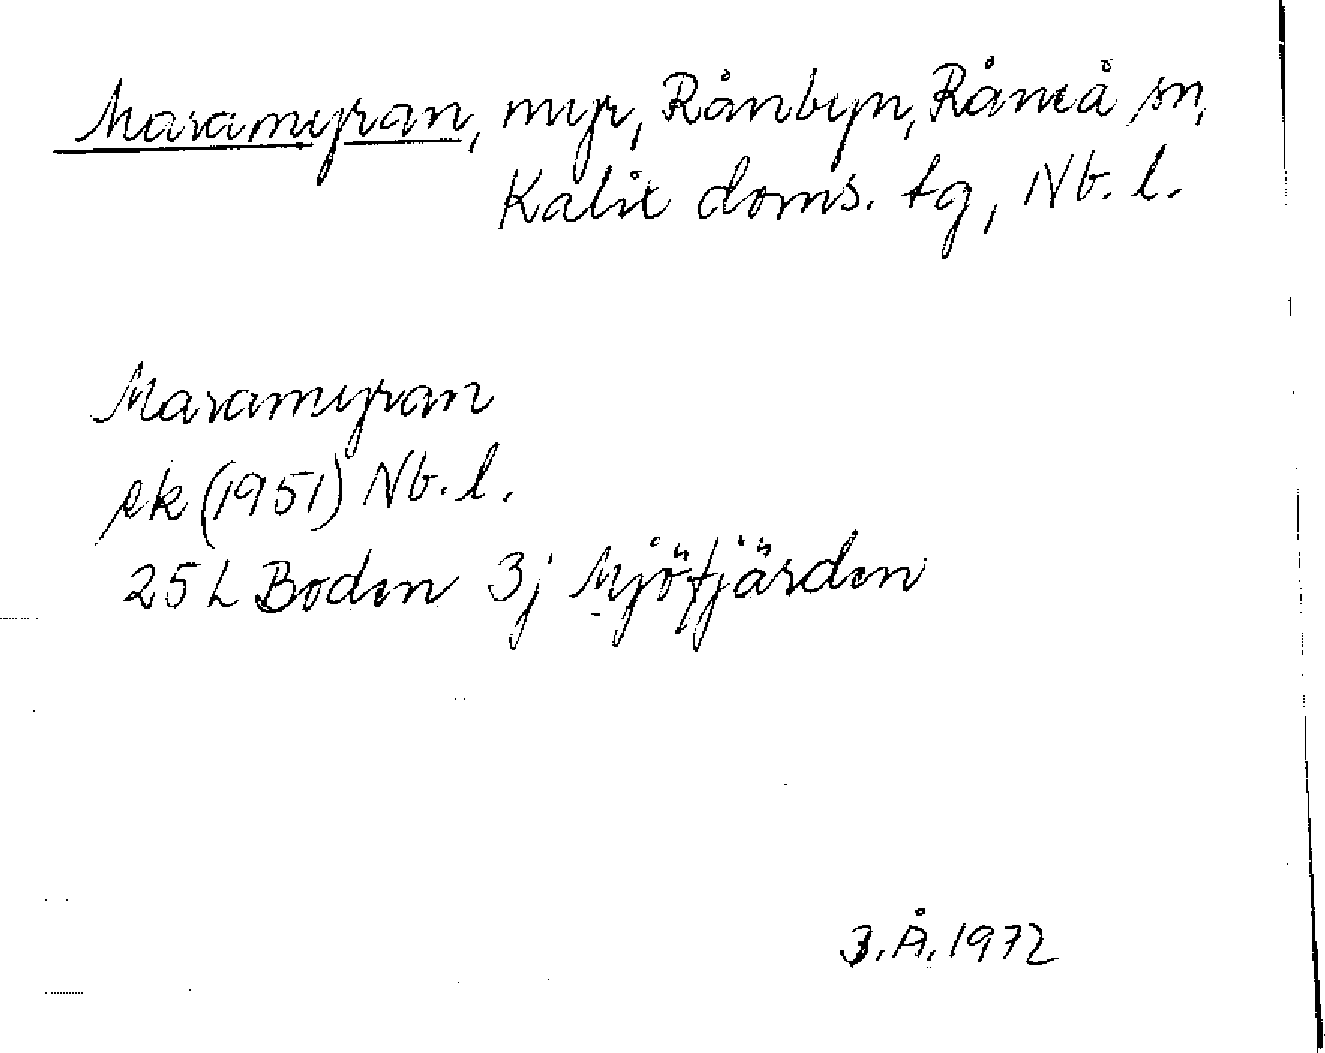 Maramyran, myr, Rånbyn, Råneå sn,
Kalix doms. tg, Nb. l.
Maramyran
ek (1951) Nb. l.
25 L Boden 3j Mjöfjärden
B.Å. 1972